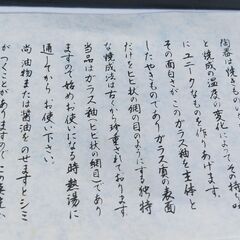 陶器は焼きもの
と焼成の温度の変化によって その持ち味
にユニークなものを作りあげます。
その面白さがこのガラス釉を主体と
したやきものでありガラス質の表面
だけをヒビ状の網の目のようにする独特
な焼成法は古くから珍重されております
当品はガラス釉ヒビ状の網目であり
ますので始めお使いになる時熱湯に
通してからお使い下さい。
尚油物または醤油をのせますとシミ
がつくことがありますのでご